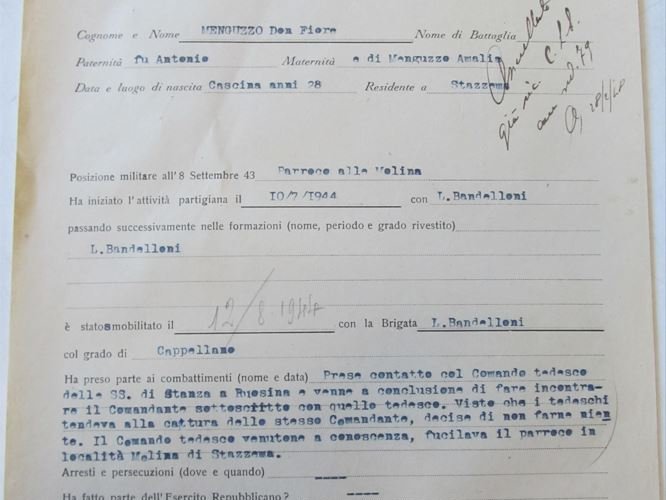 Cognome e Nome MENGUZZO Don Fiore Nome di Battaglia
Paternità fu Antonio Maternità e di Menguzzo Amalia
Data e luogo di nascita Cascina anni 28 Residente a Stazzema
Cancellato
già ric. C.L.S.
con nd. 79
28/2/48
Posizione militare all'8 Settembre 43 Parroco alle Molina
Ha iniziato l'attività partigiana il 10/7/1944 con L.Bandelloni
passando successivamente nelle formazioni (nome, periodo e grado rivestito)
L.Bandelloni
è stato smobilitato il 12/8.1944 con la Brigata L.Bandelloni
col grado di Cappellano
Ha preso parte ai combattimenti (nome e data) Prese contatto col Comando tedesco
delle SS. di Stanza a Ruosina e venne a conclusione di fare incontra-
re il Comandante sottoscritto con quello tedesco. Visto che i tedeschi
tendeva alla cattura dello stesso Comandante, decise di non farne nien
te. Il Comando tedesco venutone a conoscenza, fucilava il parroco in
località Molina di Stazzema.
Arresti e persecuzioni (dove e quando) ----
Ha fatto parte dell'Esercito Repubblicano? ----